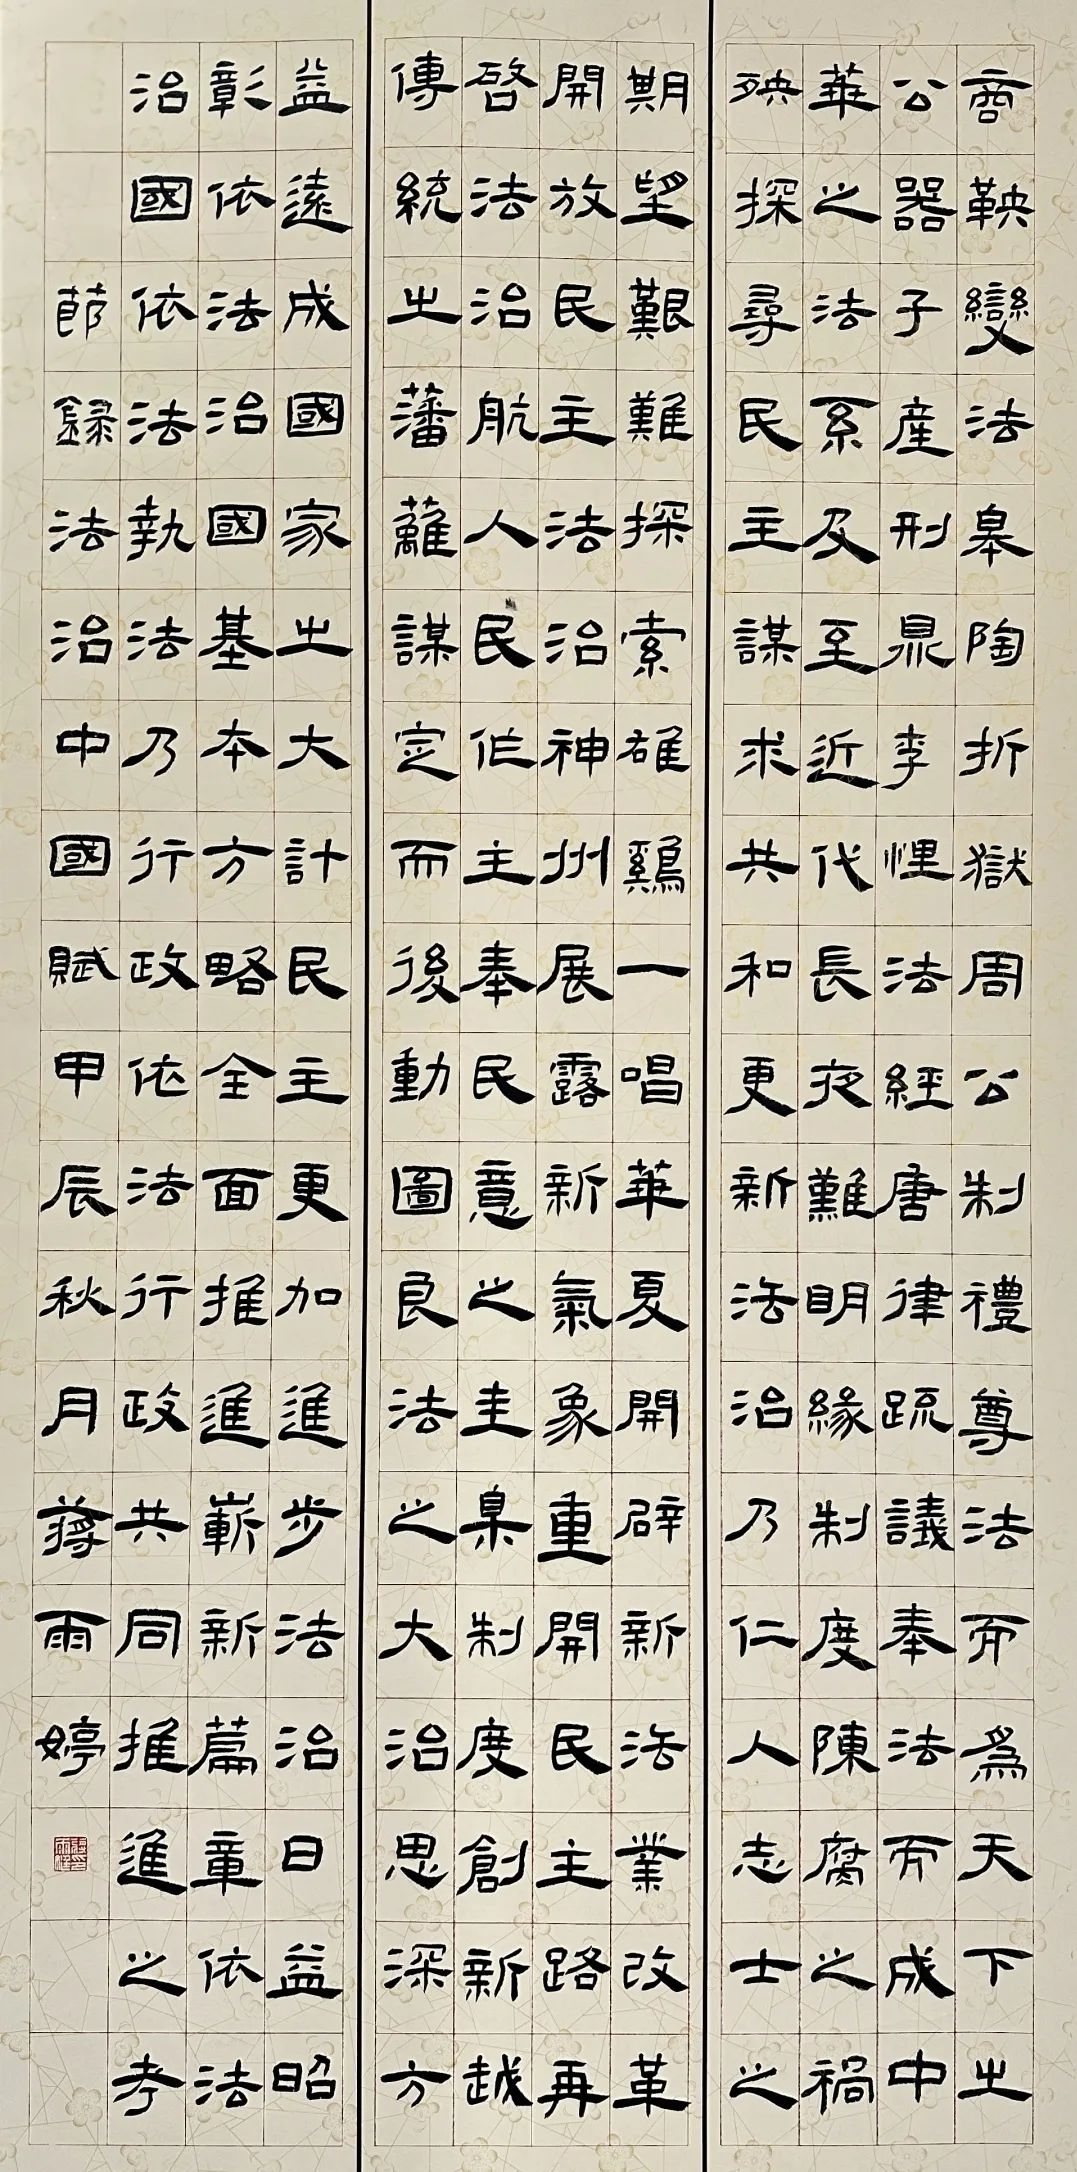 商鞅變法皋陶折獄周公制禮尊法而為天下之
公器子產刑鼎李悝法經唐律疏議奉法而成中
華之法系及至近代長夜難明緣制度陳腐之禍
殃探尋民主謀求共和更新法治乃仁人志士之
期望艱難探索雄鷄一唱華夏開辟新法業改革
開放民主法治神州展露新氣象重開民主路再
啓法治航人民作主奉民意之圭臬制度創新越
傳統之藩蘺謀定而後動圖良法之大治思深方
益遠成國家之大計民主更加進步法治日益昭
彰依法治國基本方略全面推進嶄新篇章依法
治國依法執法乃行政依法行政共同推進之考
節錄法治中國賦甲辰秋月蔣雨婷